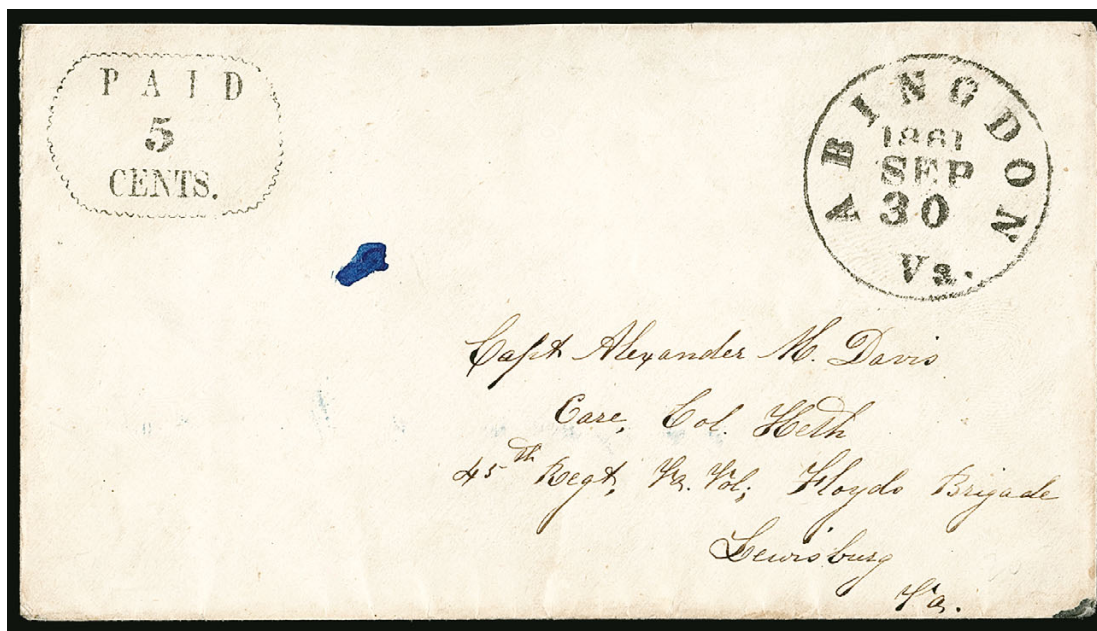 PAID
5
CENTS.
ABINGDON
1861
SEP
30
Va.
Capt Alexander M. Davis
Care, Col. Heth
45th Regt, Va. Vol; Floyds Brigade
Lewisburg
Va.